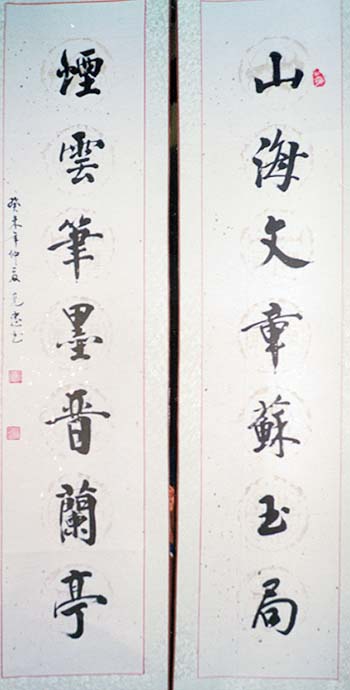 山海文章蘇玉局
煙雲筆墨晉蘭亭
癸未年仲夏